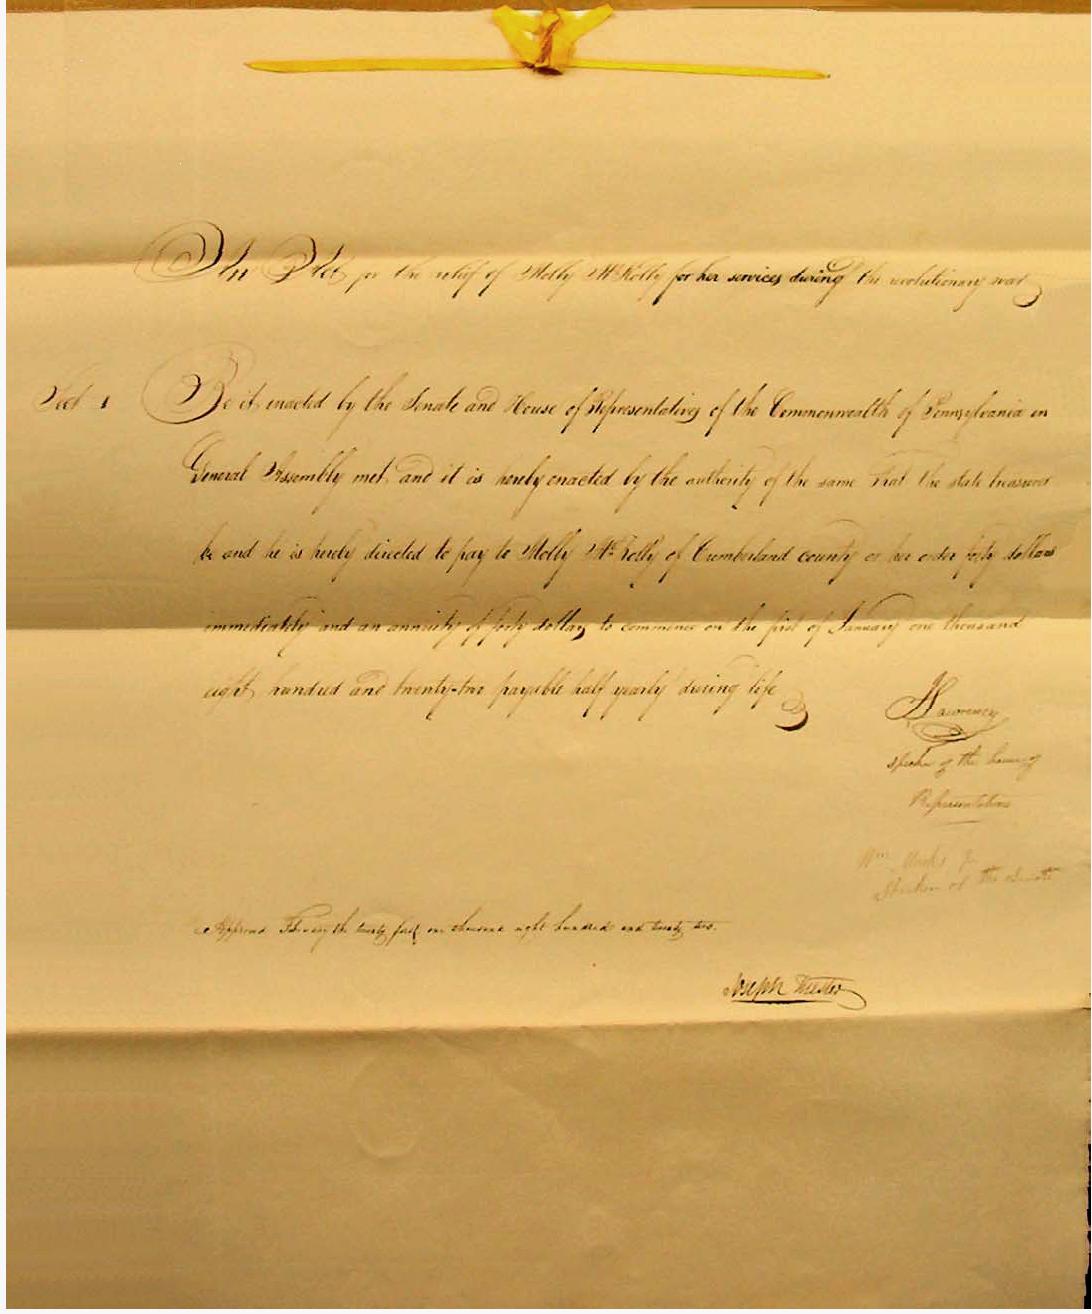 An Act for the relief of Molly McKolly for her services during the revolutionary war
Sect 1 Be it enacted by the Senate and House of Representatives of the Commonwealth of Pennsylvania in
General Assembly met and it is hereby enacted by the authority of the same That the state treasurer
be and he is hereby directed to pay to Molly McKolly of Cumberland county or her order forty dollars
immediately and an annuity of forty dollars to commence on the first of January one thousand
eight hundred and twenty-two payable half yearly during life
Lawrence
speaker of the house of
Representatives
Wm Marks Jr
Speaker of the Senate
Approved February the twenty first one thousand eight hundred and twenty two.
Joseph Hiester